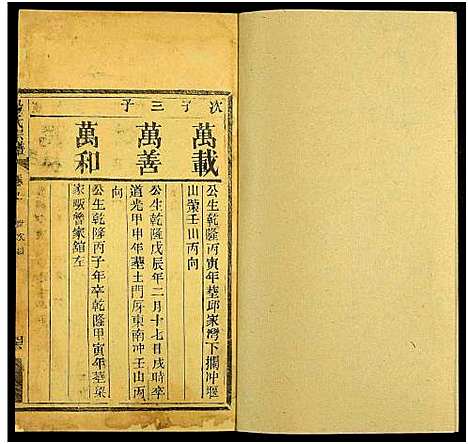 次子三子
萬載
公生乾隆丙寅年塟邱家灣下攔冲堰
山業壬山丙向
萬善
公生乾隆戊辰年二月十七日戌時卒
道光甲申年塟土門厚東南冲壬山丙
向
萬和
公生乾隆丙子年卒乾隆甲寅年塟梁
家畈曾家舘左